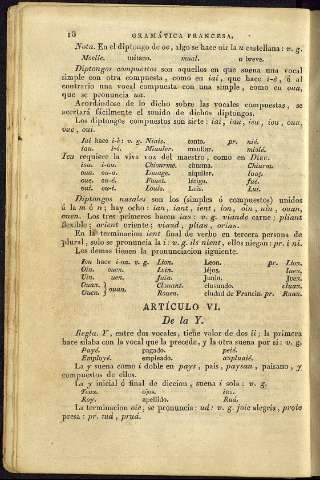 18 GRAMÁTICA FRANCESA.
Nota. En el diptongo de oe, algo se hace oir la u castellana: v. g.
Moelle. tuétano. mual. u breve.
Diptongos compuestos son aquellos en que suena una vocal
simple con otra compuesta, como en iai, que hace i-é, ó al
contrario una vocal compuesta con una simple, como en oua,
que se pronuncia ua.
Acordándose de lo dicho sobre las vocales compuestas, se
acertará fácilmente el sonido de dichos diptongos.
Los diptongos compuestos son siete: iai, iau, ieu, iou, oua,
oue, oui.
Iai hace i-é: v. g. Niais. tonto. pr. nié.
Iau. i-ó. Miauler. maullar. mioler.
Ieu requiere la viva voz del maestro, como en Dieu.
Iou. i-ou. Chiourme. chusma.
Oua. ou-a. Louage. alquiler.
Oue. ou-é. Fouet. látigo. fué.
Oui. ou-i. Louis. Luis. Lui.
Diptongos nasales son los (simples ó compuestos) unidos
á la m ó n; hay ocho: ian, iant, ient, ion, oin, uin, ouan,
ouen. Los tres primeros hacen ian: v. g. viande carne; pliant
flexible; orient oriente: viand, plian, orian.
En la terminacion ient final de verbo en tercera persona de
plural, solo se pronuncia la i: v. g. ils nient, ellos niegan: pr. i ni.
Los demas tienen la pronunciacion siguiente.
Ion hace i-on. v. g. Lion. Leon. pr. Lion.
Oin. ouen. Loin. léjos. louen.
Uin. uen. Juin. Junio. Juen.
Ouan. } ouan. Clouant. clavando. cluan.
Ouen. Rouen. ciudad de Francia. pr. Ruan.
ARTÍCULO VI.
De la Y.
Regla. Y, entre dos vocales, tiene valor de dos ii; la primera
hace sílaba con la vocal que la precede, y la otra suena por sí: v. g.
Payé. pagado. peié.
Employé. empleado.
La y suena como i doble en pays, pais, paysan, paisano, y
compuestos de ellos.
La y inicial ó final de diccion, suena i sola: v. g.
Yeux. ojos. ieu.
Roy. apellido. Ruá.
La terminacion oie; se pronuncia: uá: v. g. joie alegría, proie
presa: pr. juá, pruá.